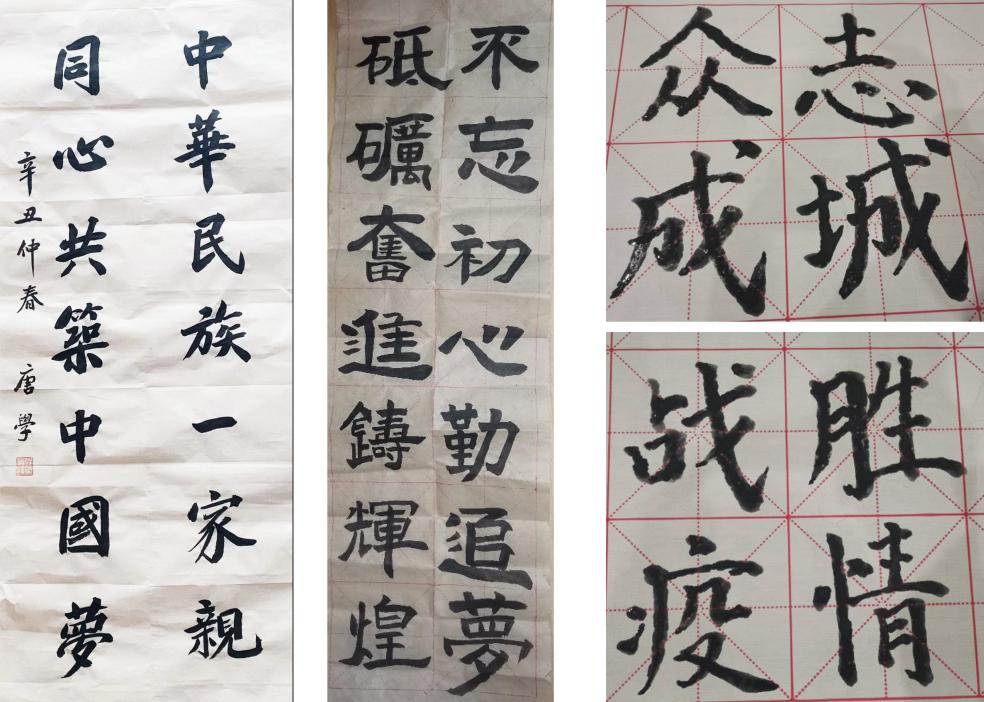 中華民族一家親
同心共築中國夢
辛丑仲春 唐學
不忘初心勤追夢
砥礪奮進鑄輝煌
众志
成城
战胜
疫情